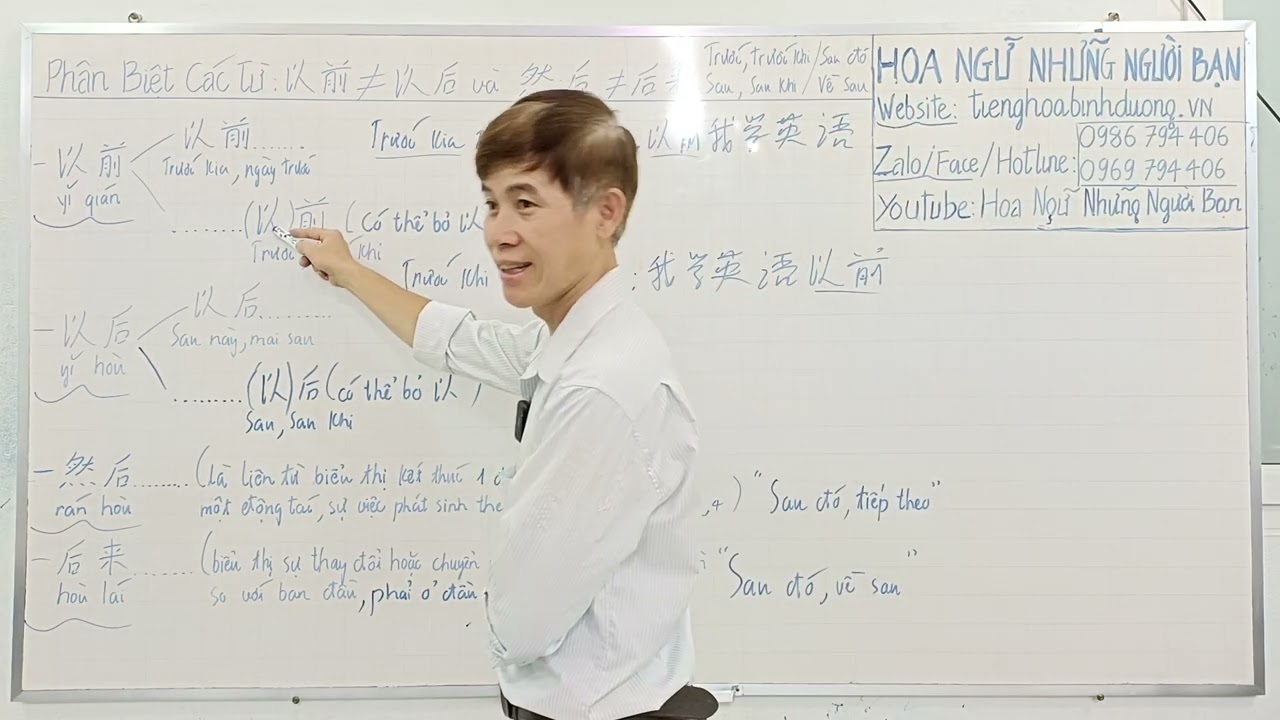 Phân Biệt Các Từ: 以前 ≠ 以后 và 然后 ≠ 后
Trước, trước khi/Sau đó
Sau, Sau khi/Về sau
HOA NGỮ NHỮNG NGƯỜI BẠN
Website: tienghoabinhduong.VN
Zalo/Face/Hotline: 0986 794 406
0969 794 406
Youtube: Hoa Ngữ Những Người Bạn
- 以前
yǐ qián
以前.......
Trước kia, ngày trước
Trước kia
以前我学英语
........(以)前 (Có thể bỏ 以
Trước Khi
Trước Khi
: 我学英语以前
- 以后
yǐ hòu
以后..........
Sau này, mai sau
.........(以)后 (có thể bỏ 以)
Sau, Sau khi
- 然后........ (là liên từ biểu thị kết thúc 1
rán hòu
một động tác, sự việc phát sinh the
,4) "Sau đó, tiếp theo"
- 后来......... (biểu thị sự thay đổi hoặc chuyển
hòu lái
so với ban đầu, phải ở đầu
"Sau đó, về sau"